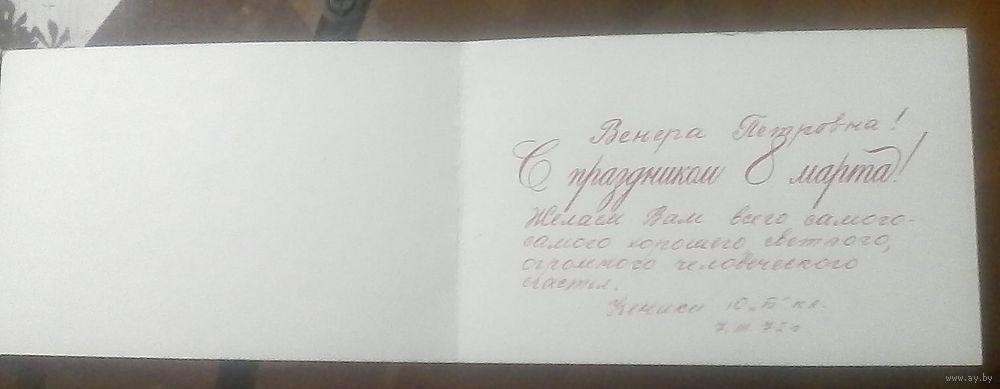 Венера Петровна!
С праздником 8 марта!
Желаем Вам всего самого-
самого хорошего, светлого,
огромного человеческого
счастья.
Ученики 10 „Б" кл.
7.III.72г
www.ay.by